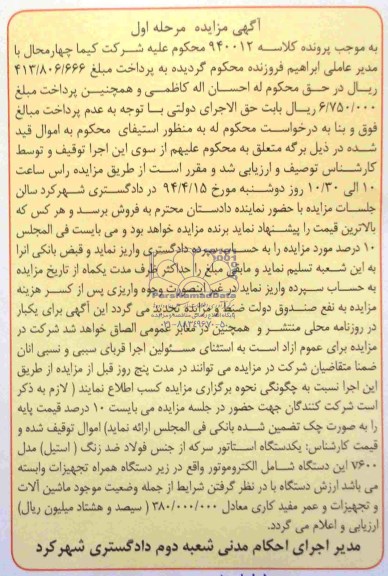 آگهی مزایده مرحله اول
به موجب پرونده کلاسه ۹۴۰۰۱۲ محکوم علیه شرکت کیما چهارمحال با
مدیر عاملی ابراهیم فروزنده محکوم گردیده به پرداخت مبلغ ۴۱۳/۸۰۶/۶۶۶
ریال در حق محکوم له احسان اله کاظمی و همچنین پرداخت مبلغ
۶/۷۵۰/۰۰۰ ریال بابت حق الاجرای دولتی با توجه به عدم پرداخت مبالغ
فوق و بنا به درخواست محکوم له به منظور استیفای محکوم به اموال قید
شده در ذیل برگه متعلق به محکوم علیهم از سوی این اجرا توقیف و توسط
کارشناس توصیف و ارزیابی شد و مقرر است از طریق مزایده راس ساعت
۱۰ الی ۱۰/۳۰ روز دوشنبه مورخ ۹۴/۴/۱۵ در دادگستری شهرکرد سالن
جلسات مزایده با حضور نماینده دادستان محترم به فروش برسد و هر کس که
بالاترین قیمت را پیشنهاد نماید برنده مزایده خواهد بود و می بایست فی المجلس
۱۰ درصد مورد مزایده را به حساب سپرده دادگستری واریز نماید و قبض بانکی انرا
به این شعبه تسلیم نماید و مابقی مبلغ را حداکثر ظرف مدت یکماه از تاریخ مزایده
به حساب سپرده واریز نماید در غیر اینصورت وجوه واریزی پس از کسر هزینه
مزایده به نفع صندوق دولت ضبط و مزایده تجدید می گردد این آگهی برای یکبار
در روزنامه محلی منتشر و همچنین در معابر عمومی الصاق خواهد شد شرکت در
مزایده برای عموم ازاد است به استثنای مسئولین اجرا قربای سببی و نسبی انان
ضمنا متقاضیان شرکت در مزایده می توانند در مدت پنج روز قبل از مزایده از طریق
این اجرا نسبت به چگونگی نحوه برگزاری مزایده کسب اطلاع نمایند ( لازم به ذکر
است شرکت کنندگان جهت حضور در جلسه مزایده می بایست ۱۰ درصد قیمت پایه
را به صورت چک تضمین شده بانکی فی المجلس ارائه نماید) اموال توقیف شده و
قیمت کارشناس: یکدستگاه استاتور سرکه از جنس فولاد ضد زنگ ( استیل) مدل
۷۶۰۰ این دستگاه شامل الکتروموتور واقع در زیر دستگاه همراه تجهیزات وابسته
می باشد ارزش دستگاه با در نظر گرفتن شرایط از جمله وضعیت موجود ماشین آلات
و تجهیزات و عمر مفید کاری معادل ۳۸۰/۰۰۰/۰۰۰ ( سیصد و هشتاد میلیون ریال)
ارزیابی و اعلام می گردد.
مدیر اجرای احکام مدنی شعبه دوم دادگستری شهرکرد